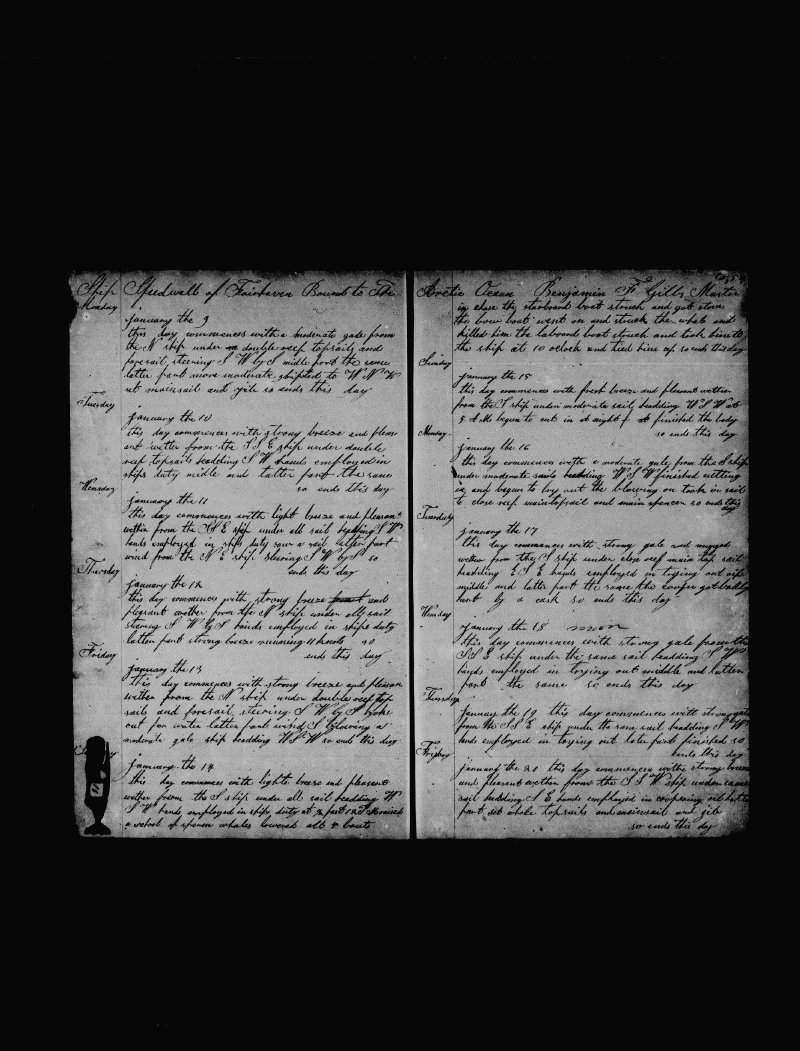 Ship Speedwell of Fairhaven Bound to The
Monday
january the 9
this day commences with a moderate gale from
the N ship under double reef topsails and
foresail steering S W by S midle part the same
latter part more moderate shifted to W N W
set mainsail and jib so ends this day
Tuesday
january the 10
this day commences with strong breeze and pleas
ant wether from the S S E ship under double
reef topsails heading S W hands employed in
ships duty midle and latter part the same
so ends this day
Wensday
january the 11
this day commences with light breeze and pleasant
wether from the S S E ship under all sail heading S W
hands employed in ships duty saw a sail latter part
wind from the N E ship steering S W by S so
ends this day
Thursday
january the 12
this day commences with strong breeze and
pleasant wether from the N ship under all sail
steering S W by S hands employed in ships duty
latter part strong breeze running 11 knots so
ends this day
Friday
january the 13
this day commences with strong breeze and pleasan
wether from the N ship under double reef top
sails and foresail steering S W by S broke
out for water latter part wind S blowing a
moderate gale ship heading W S W so ends this day
january the 14
this day commences with light breeze and pleasant
wether from the S ship under all sail heading W
S W hands employed in ships duty at ½ past 12 raised
a school of sperm whales lowered all 4 boats
Arctic Ocean Benjamin F Gibbs Master
in chase the starboard boat struck and got stove
the bow boat went on and struck the whale and
killed him the labourd boat struck and took hime to
the ship at 10 oclock and tied hime up so ends this day
Sunday
january the 15
this day commences with fresh breeze and pleasant wether
from the S ship under moderate sail heading W S W at
8 A.M. began to cut in at night finished the body
so ends this day
Monday
january the 16
this day commences with a moderate gale from the S ship
under moderate sails heading W S W finished cutting
in and began to boy out the blowing on took in sail
to close reef maintopsail and main spencer so ends this
day
Tuesday
january the 17
this day commences with strong gale and rugged
wether from the S ship under close reef main top sail
heading E S E hands employed in trying out
middle and latter part the same the cooper got badly
hurt by a cask so ends this day
Wensday
january the 18
this day commences with strong gale from the
S S E ship under the same sail heading S W
hands employed in trying out middle and latter
part the same so ends this day
Thursday
january the 19 this day commences with strong gale
from the S S E ship under the same sail heading S W
hands employed in trying out later part finished so
ends this day
Friday
january the 20 this day commences with strong breeze
and pleasant wether from the S S W ship under same
sail heading S E hands employed in coopering oil latter
part set whole topsails and mainsail and jib
so ends this day